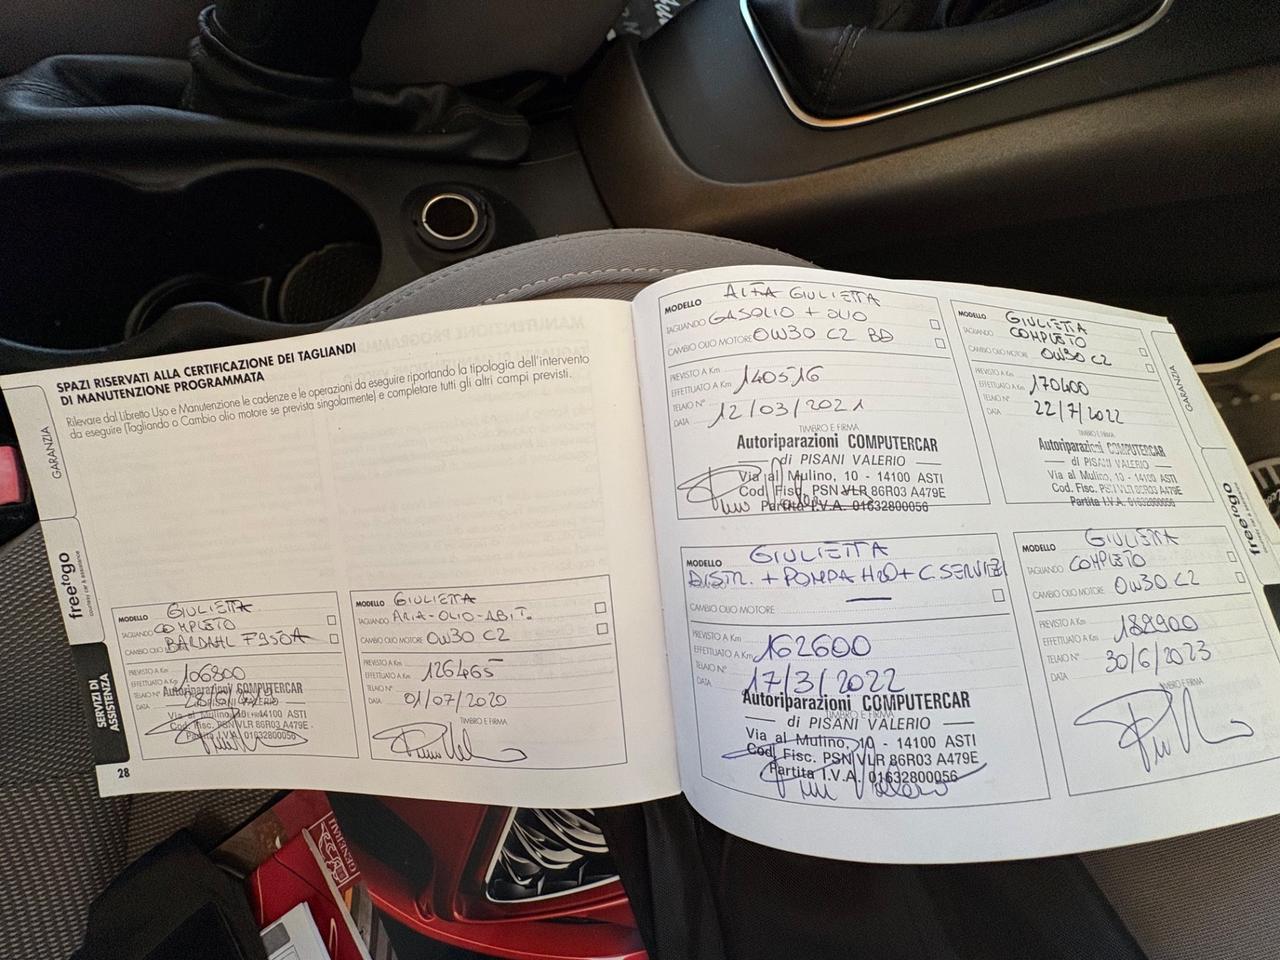 SPAZI RISERVATI ALLA CERTIFICAZIONE DEI TAGLIANDI
DI MANUTENZIONE PROGRAMMATA
Rilevare dal Libretto Uso e Manutenzione le cadenze e le operazioni da eseguire riportando la tipologia dell'intervento
da eseguire (Tagliando o Cambio olio motore se prevista singolarmente) e completare tutti gli altri campi previsti.
GARANZIA
freetogo
SERVIZI DI
ASSISTENZA
28
MODELLO GIULIETTA
TAGLIANDO COMPLETO
CAMBIO OLIO BARDAHL
PREVISTO A Km
EFFETTUATO A Km 106800
TELAIO N°
DATA
Autoriparazioni COMPUTERCAR
di PISANI VALERIO
Via al Mulino, 10 - 14100 ASTI
Cod. Fisc. PSN VLR 86R03 A479E
Partita I.V.A. 01632800056
MODELLO GIULIETTA
TAGLIANDO ARIA-OLIO-ABIT.
CAMBIO OLIO MOTORE 0W30 C2
PREVISTO A Km
EFFETTUATO A Km 126465
TELAIO N°
DATA 01/07/2020
TIMBRO E FIRMA
MODELLO ALFA GIULIETTA
TAGLIANDO GASOLIO + OLIO
CAMBIO OLIO MOTORE 0W30 C2 BD
PREVISTO A Km
EFFETTUATO A Km 140516
TELAIO N°
DATA 12/03/2021
TIMBRO E FIRMA
Autoriparazioni COMPUTERCAR
di PISANI VALERIO
Via al Mulino, 10 - 14100 ASTI
Cod. Fisc. PSN VLR 86R03 A479E
Partita I.V.A. 01632800056
MODELLO GIULIETTA
TAGLIANDO COMPLETO
CAMBIO OLIO MOTORE 0W30 C2
PREVISTO A Km
EFFETTUATO A Km 170400
TELAIO N°
DATA 22/7/2022
TIMBRO E FIRMA
Autoriparazioni COMPUTERCAR
di PISANI VALERIO
Via al Mulino, 10 - 14100 ASTI
Cod. Fisc. PSN VLR 86R03 A479E
Partita I.V.A. 01632800056
MODELLO GIULIETTA
DISTR. + POMPA H2O + C. SERVIZI
CAMBIO OLIO MOTORE
PREVISTO A Km
EFFETTUATO A Km 162600
TELAIO N°
DATA 17/3/2022
TIMBRO E FIRMA
Autoriparazioni COMPUTERCAR
di PISANI VALERIO
Via al Mulino, 10 - 14100 ASTI
Cod. Fisc. PSN VLR 86R03 A479E
Partita I.V.A. 01632800056
MODELLO GIULIETTA
TAGLIANDO COMPLETO
CAMBIO OLIO MOTORE 0W30 C2
PREVISTO A Km
EFFETTUATO A Km 188900
TELAIO N°
DATA 30/6/2023
TIMBRO E FIRMA
GARANZIA
freetogo
GENERALI